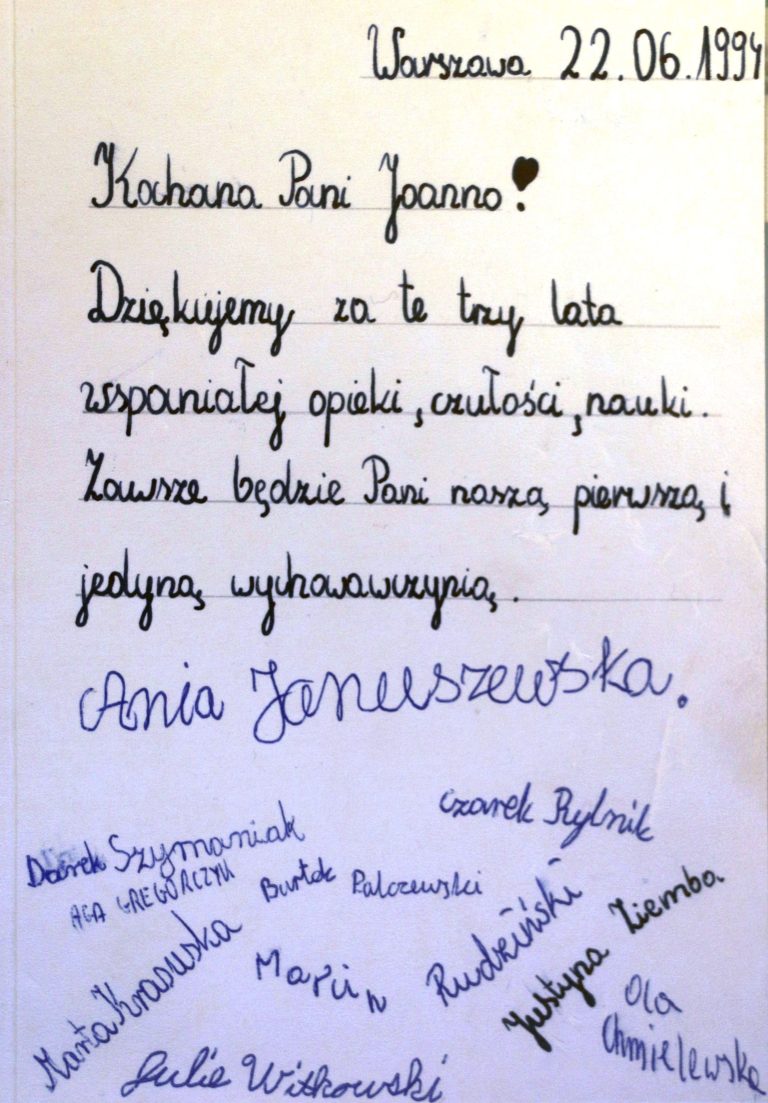 Warszawa 22.06.1994
Kochana Pani Joanno!
Dziękujemy za te trzy lata
wspaniałej opieki, czułości, nauki.
Zawsze będzie Pani naszą pierwszą i
jedyną wychowawczynią.
Ania Januszewska.
Czarek Rylnik
Darek Szymaniak
AGA GREGORCZYK
Bartek Palczewski
Marta Krasuska
Marcin Rudziński
Justyna Ziemba
Ola Chmielewska
Witkowski